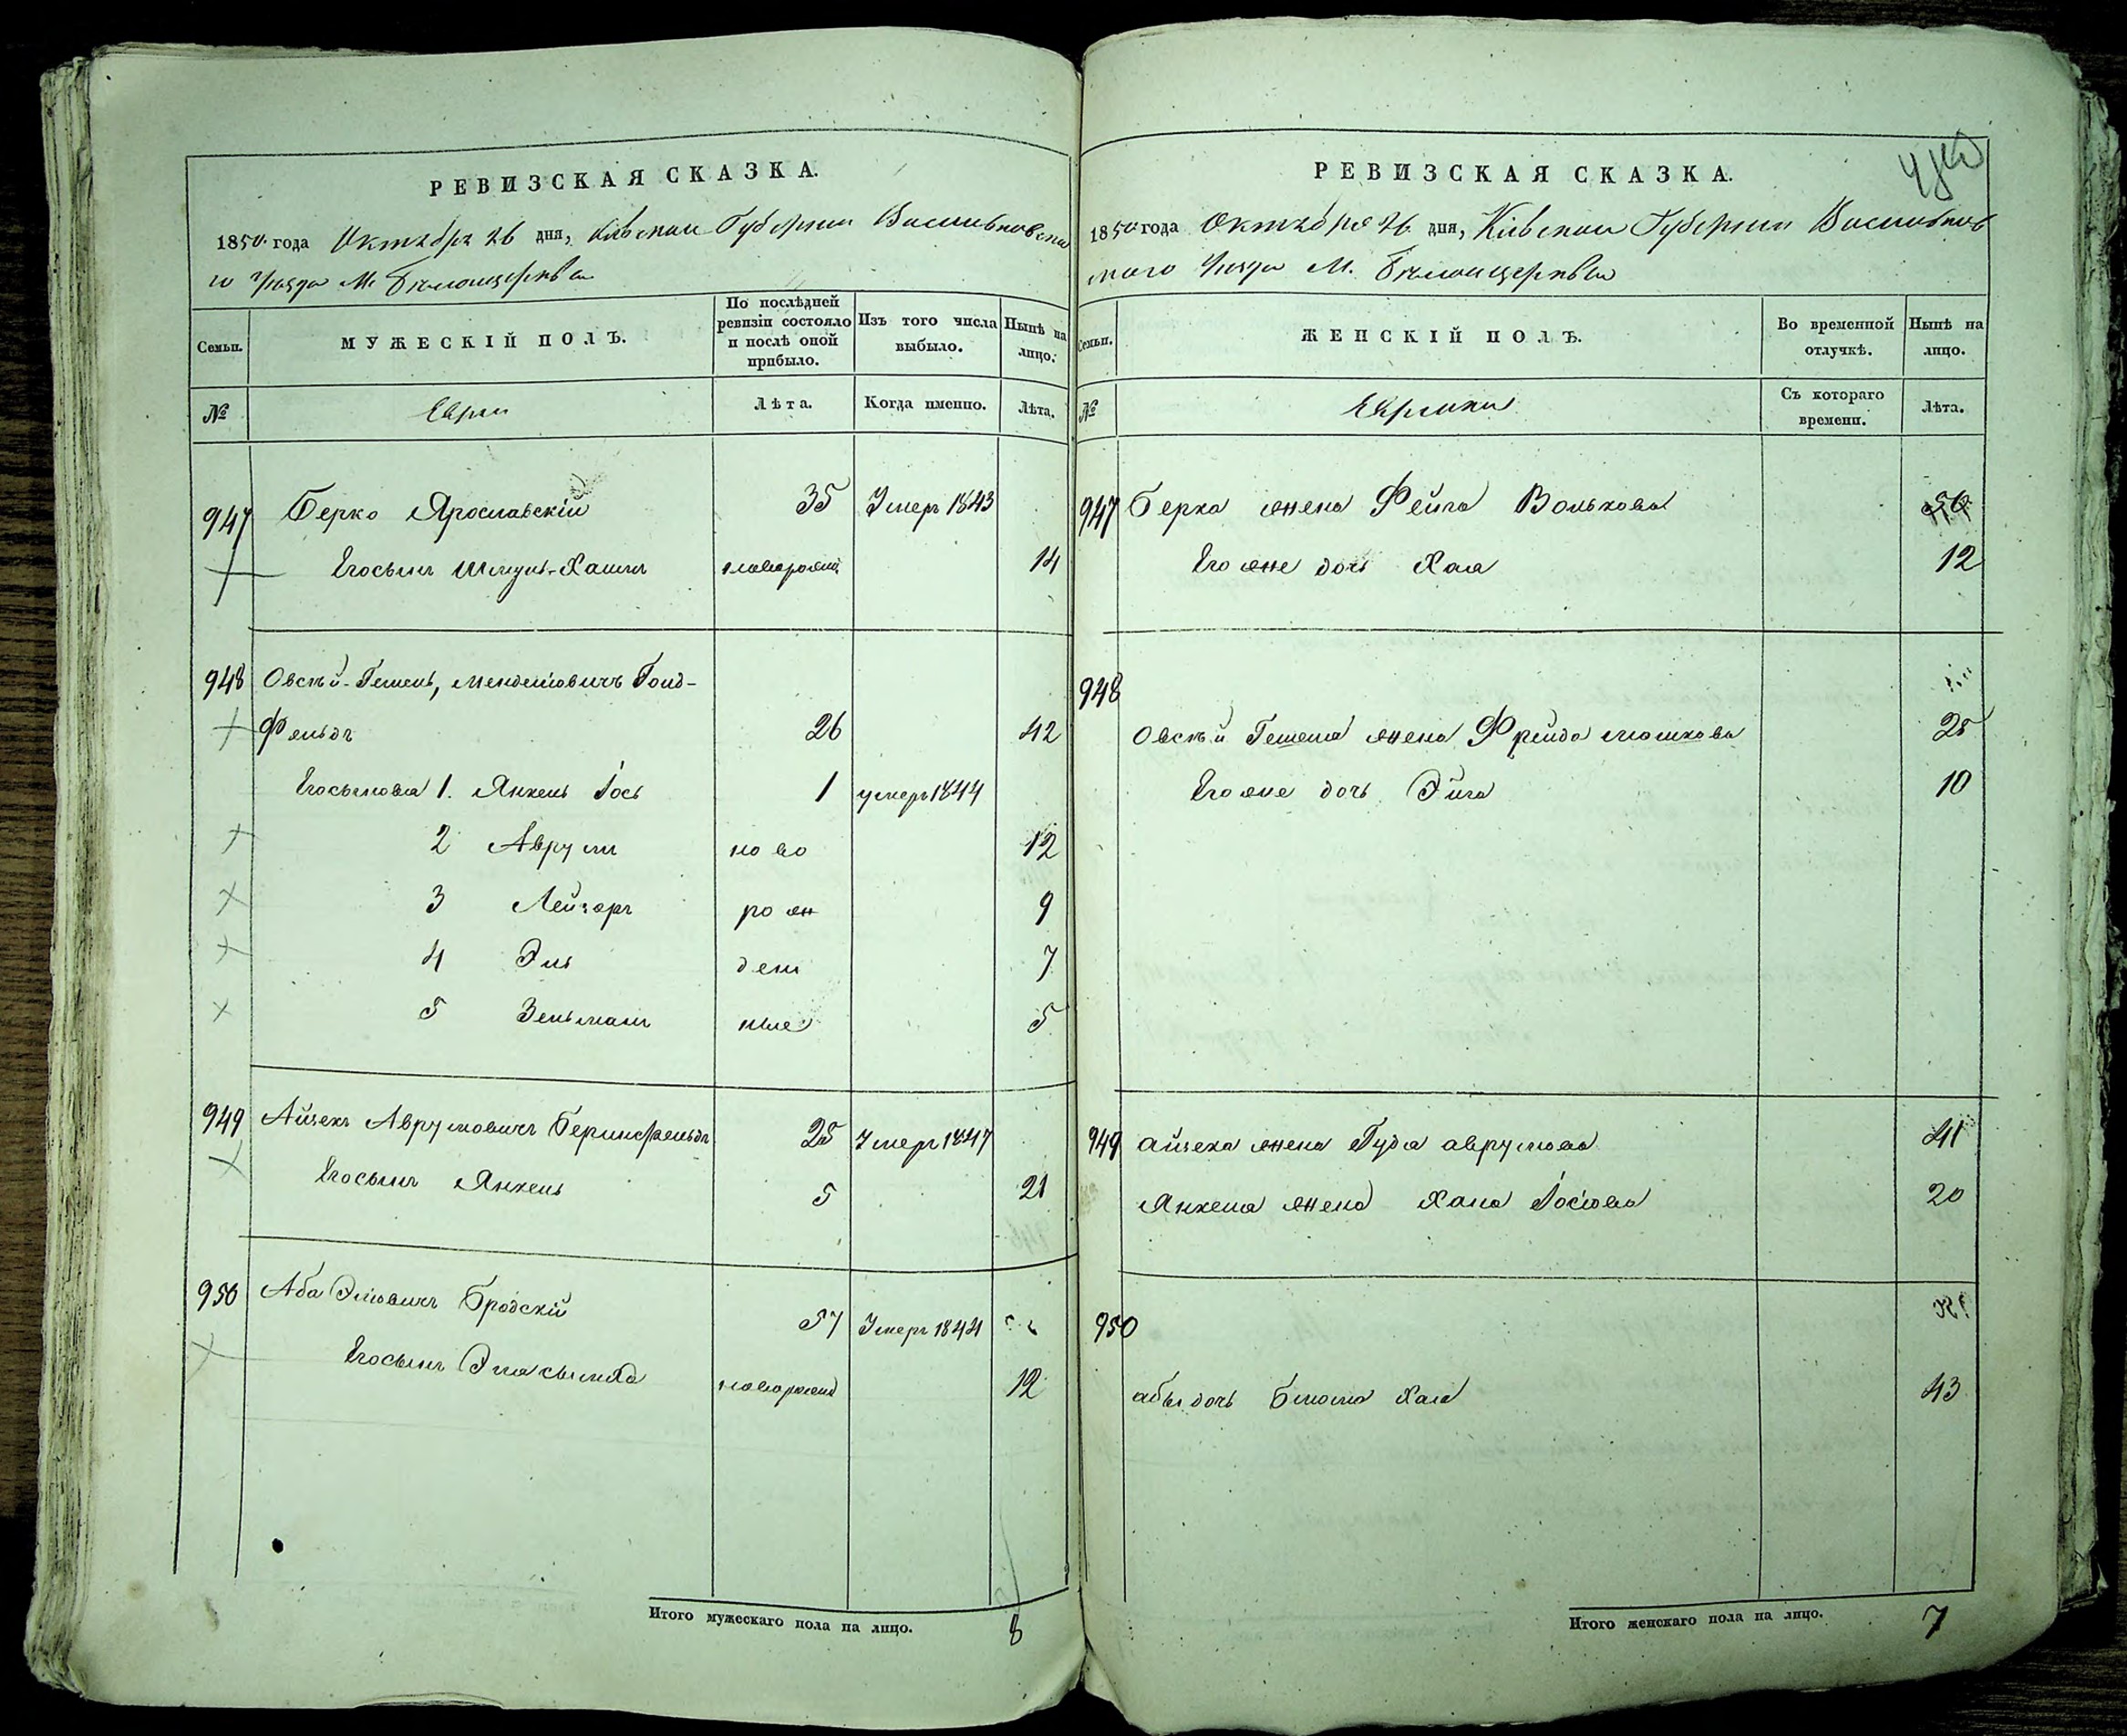 РЕВИЗСКАЯ СКАЗКА.
1850 года Октября 26 дня, Кіевской Губерніи Васильковска
го Уезда М. Белоцерквы
Семьи.
МУЖЕСКІЙ ПОЛЪ.
По послѣдней ревизіи состояло и послѣ оной прибыло.
Изъ того числа выбыло.
Нынѣ на лицо.
№
Евреи
Лѣта.
Когда именно.
Лѣта.
947 Берко Ярославскій 35 Умеръ 1843
Его сынъ новорожд. 14
948 Овсѣй-Гешель, Менделіовичъ Голд-
Фельдъ 26 42
Его сыновья 1. Янкель Іось 1 умеръ 1844
2 Аврумъ ново 12
3 Лейзоръ рож 9
4 Эль ден 7
5 Зельманъ ные 5
949 Айзекъ Аврумовичъ Беринфельдъ 25 Умеръ 1847
Его сынъ Янкель 5 21
950 Аба Эліовичъ Бродскій 57 Умеръ 1844
Его сынъ новорожд 12
Итого мужескаго пола на лицо. 8
РЕВИЗСКАЯ СКАЗКА.
1850 года Октября 26 дня, Кіевской Губерніи Васильков
скаго Уезда М. Белоцерквы
Семьи.
ЖЕНСКІЙ ПОЛЪ.
Во временной отлучкѣ.
Нынѣ на лицо.
№
Еврейки
Съ котораго времени.
Лѣта.
947 Берка жена Фейга Волькова 50
Его же дочь Хая 12
948
Овсѣй Гешеля жена Фрейда Мошкова 25
Его же дочь Эйга 10
949 Айзека жена Гудя Аврумова 41
Янкеля жена Хана Іосіова 20
950
Абы дочь Блюма Хая 43
Итого женскаго пола на лицо. 7